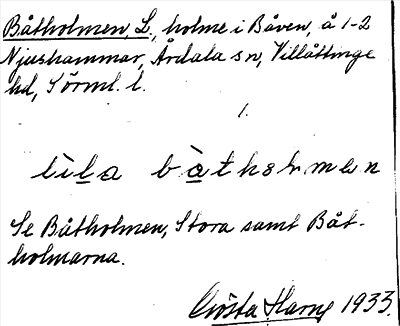 Båtholmen L., holme i Båven, å 1-2
Njushammar, Årdala sn, Villåttinge
hd, Sörml. l.
1.
lìla bàthɷlmen
Se Båtholmen, Stora samt Båt-
holmarna.
Gösta Harne 1933.